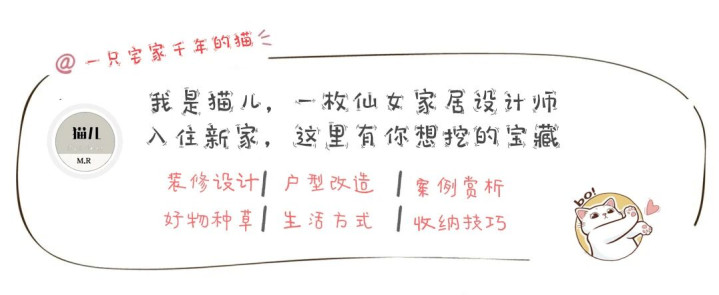 @一只宅家千年的猫
我是猫儿，一枚仙女家居设计师
入住新家，这里有你想挖的宝藏
猫儿
M.R
装修设计| 户型改造 | 案例赏析
好物种草| 生活方式 | 收纳技巧
bo!